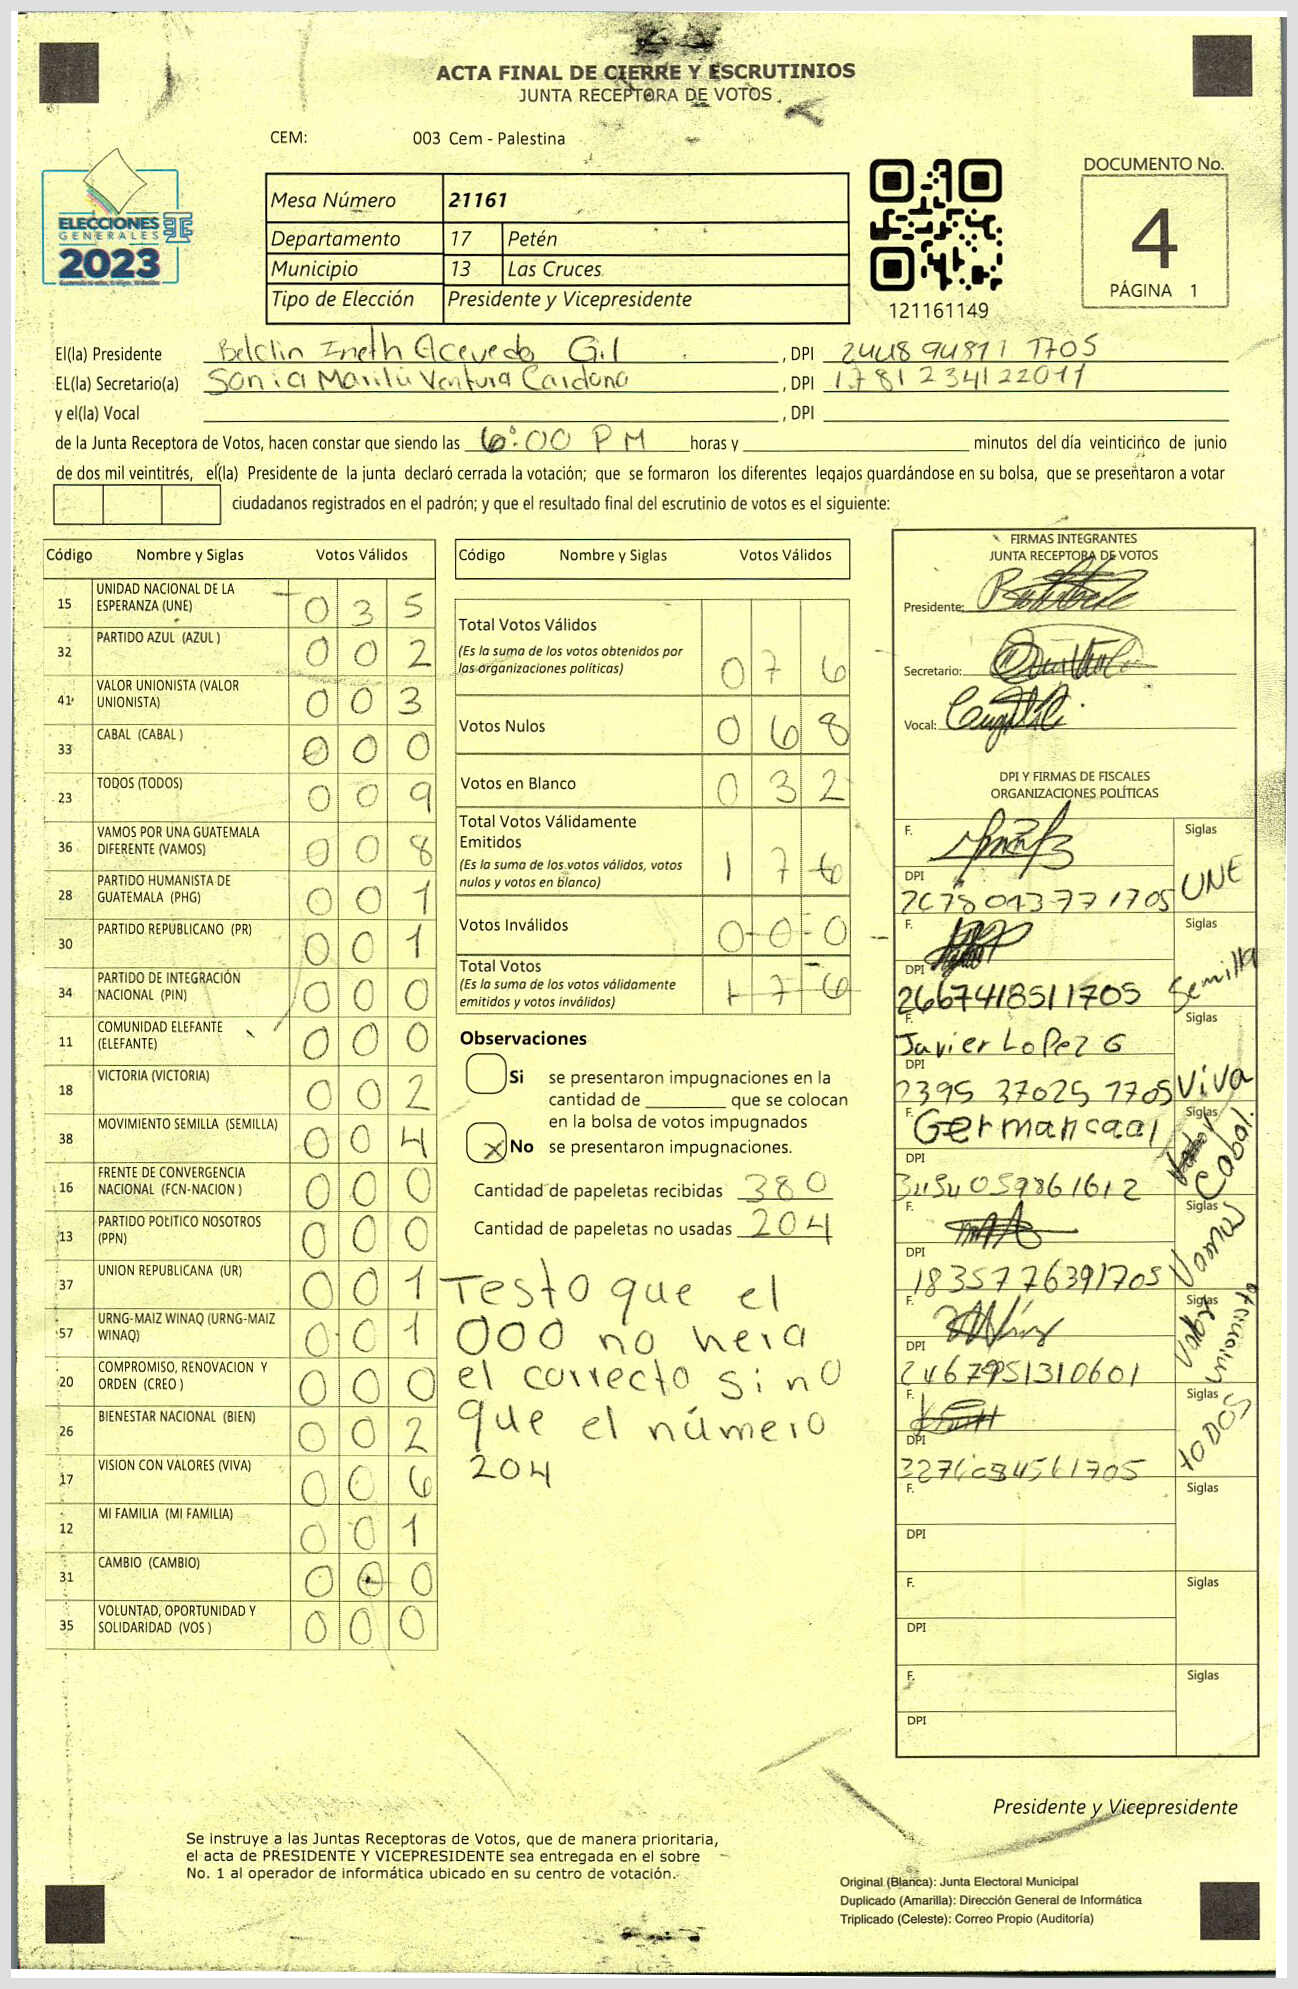 ACTA FINAL DE CIERRE Y ESCRUTINIOS
JUNTA RECEPTORA DE VOTOS
CEM: 003 Cem - Palestina
ELECCIONES
GENERALES
2023
Mesa Número 21161
Departamento 17 Petén
Municipio 13 Las Cruces
Tipo de Elección Presidente y Vicepresidente
121161149
DOCUMENTO No.
4
PÁGINA 1
El(la) Presidente Belclin Ineth Acevedo Gil , DPI 2448 94811 1705
EL(la) Secretario(a) Sonia Marilu Ventura Cardona , DPI 1781234122011
y el(la) Vocal , DPI
de la Junta Receptora de Votos, hacen constar que siendo las 6:00 PM horas y minutos del día veinticinco de junio
de dos mil veintitrés, el(la) Presidente de la junta declaró cerrada la votación; que se formaron los diferentes legajos guardándose en su bolsa, que se presentaron a votar
ciudadanos registrados en el padrón; y que el resultado final del escrutinio de votos es el siguiente:
Código Nombre y Siglas Votos Válidos
15 UNIDAD NACIONAL DE LA ESPERANZA (UNE) 0 3 5
32 PARTIDO AZUL (AZUL ) 0 0 2
41 VALOR UNIONISTA (VALOR UNIONISTA) 0 0 3
33 CABAL (CABAL ) 0 0 0
23 TODOS (TODOS) 0 0 9
36 VAMOS POR UNA GUATEMALA DIFERENTE (VAMOS) 0 0 8
28 PARTIDO HUMANISTA DE GUATEMALA (PHG) 0 0 1
30 PARTIDO REPUBLICANO (PR) 0 0 1
34 PARTIDO DE INTEGRACIÓN NACIONAL (PIN) 0 0 0
11 COMUNIDAD ELEFANTE (ELEFANTE) 0 0 0
18 VICTORIA (VICTORIA) 0 0 2
38 MOVIMIENTO SEMILLA (SEMILLA) 0 0 4
16 FRENTE DE CONVERGENCIA NACIONAL (FCN-NACION ) 0 0 0
13 PARTIDO POLITICO NOSOTROS (PPN) 0 0 0
37 UNION REPUBLICANA (UR) 0 0 1
57 URNG-MAIZ WINAQ (URNG-MAIZ WINAQ) 0 0 1
20 COMPROMISO, RENOVACION Y ORDEN (CREO ) 0 0 0
26 BIENESTAR NACIONAL (BIEN) 0 0 2
17 VISION CON VALORES (VIVA) 0 0 6
12 MI FAMILIA (MI FAMILIA) 0 0 1
31 CAMBIO (CAMBIO) 0 0 0
35 VOLUNTAD, OPORTUNIDAD Y SOLIDARIDAD (VOS ) 0 0 0
Código Nombre y Siglas Votos Válidos
Total Votos Válidos
(Es la suma de los votos obtenidos por
las organizaciones políticas) 0 7 6
Votos Nulos 0 6 8
Votos en Blanco 0 3 2
Total Votos Válidamente
Emitidos
(Es la suma de los votos válidos, votos
nulos y votos en blanco) 1 7 6
Votos Inválidos 0-0-0
Total Votos
(Es la suma de los votos válidamente
emitidos y votos inválidos) 1 7 6
Observaciones
Si se presentaron impugnaciones en la
cantidad de que se colocan
en la bolsa de votos impugnados
x No se presentaron impugnaciones.
Cantidad de papeletas recibidas 380
Cantidad de papeletas no usadas 204
Testo que el
000 no hera
el correcto sino
que el número
204
FIRMAS INTEGRANTES
JUNTA RECEPTORA DE VOTOS
Presidente:
Secretario:
Vocal:
DPI Y FIRMAS DE FISCALES
ORGANIZACIONES POLÍTICAS
F. Siglas
DPI UNE
F. Siglas
DPI
2667418511705 Semilla
F. Siglas
Javier Lopez G
DPI
2395 37025 1705 Viva
F. Siglas
German caal
DPI Cabal.
3454059861612
F. Siglas
DPI
1835776391705 Vamos
F. Siglas
DPI Valor
2467951310601
F. Siglas
DPI TODOS
F. Siglas
DPI
F. Siglas
DPI
F. Siglas
DPI
Presidente y Vicepresidente
Se instruye a las Juntas Receptoras de Votos, que de manera prioritaria,
el acta de PRESIDENTE Y VICEPRESIDENTE sea entregada en el sobre
No. 1 al operador de informática ubicado en su centro de votación.
Original (Blanca): Junta Electoral Municipal
Duplicado (Amarilla): Dirección General de Informática
Triplicado (Celeste): Correo Propio (Auditoría)